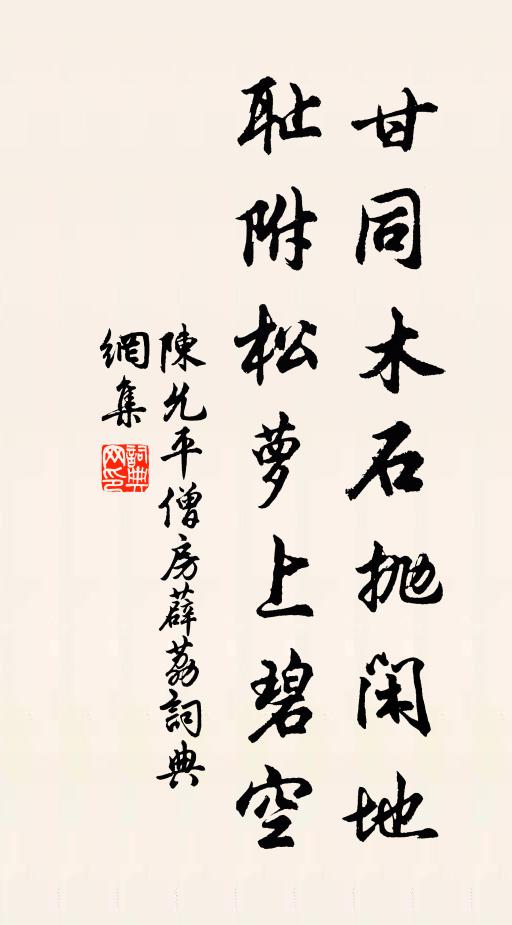 甘同木石抛闲地
耻附松萝上碧空
陳允平僧房薜荔詞典
網集
詞典网印